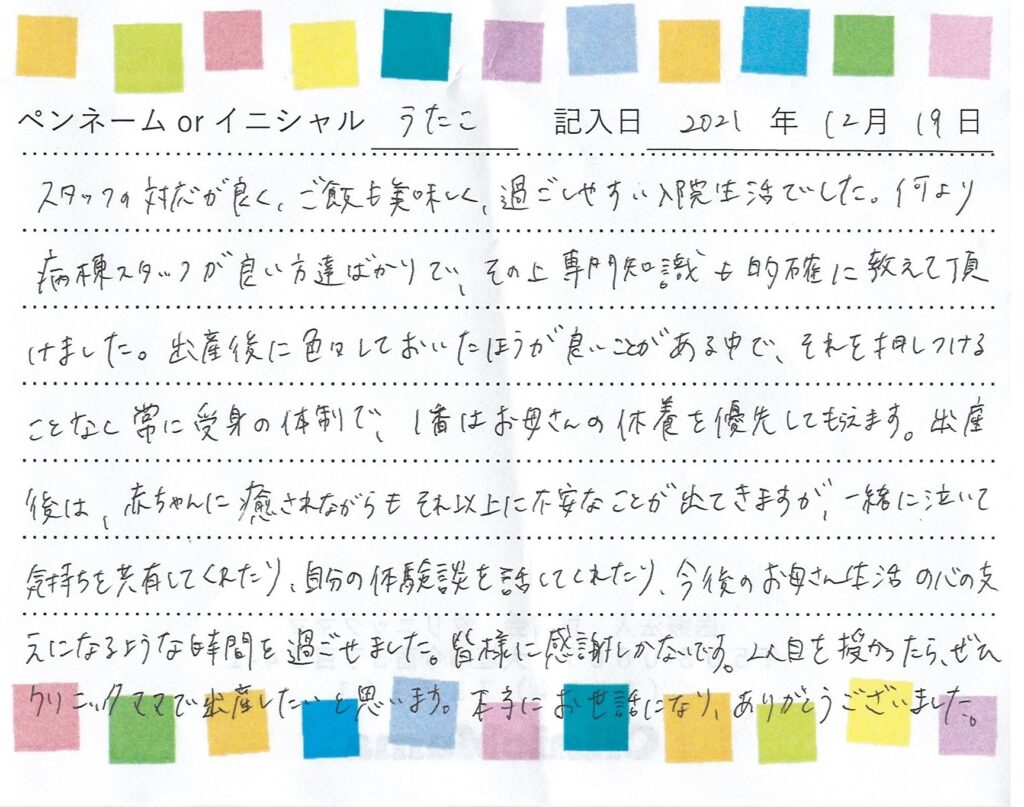 ペンネーム or イニシャル うたこ 記入日 2021 年 12月 19日
スタッフの対応が良く、ご飯も美味しく、過ごしやすい入院生活でした。何より
病棟スタッフが良い方達ばかりで、その上専門知識も的確に教えて頂
けました。出産後に色々しておいたほうが良いことがある中で、それを押しつける
ことなく常に受身の体制で、1番はお母さんの休養を優先してもらえます。出産
後は、赤ちゃんに癒されながらもそれ以上に不安なことが出てきますが、一緒に泣いて
気持ちを共有してくれたり、自分の体験談を話してくれたり、今後のお母さん生活の心の支
えになるような時間を過ごせました。皆様に感謝しかないです。2人目を授かったら、ぜひ
クリニックママで出産したいと思います。本当にお世話になり、ありがとうございました。